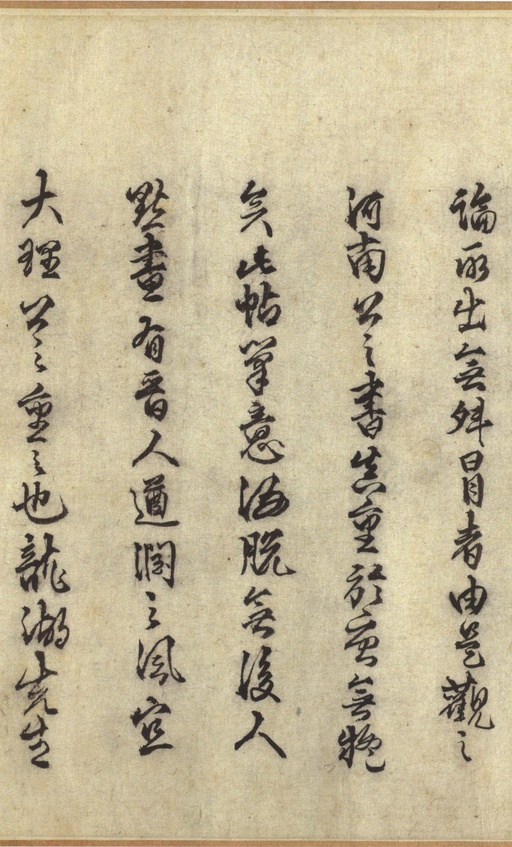 論所出無舛冒者由是觀之
河南公之書其重於唐無疑
矣此帖筆意洒脫無後人
點畫有晉人遒潤之風宜
大理公之重之也龍湖先生